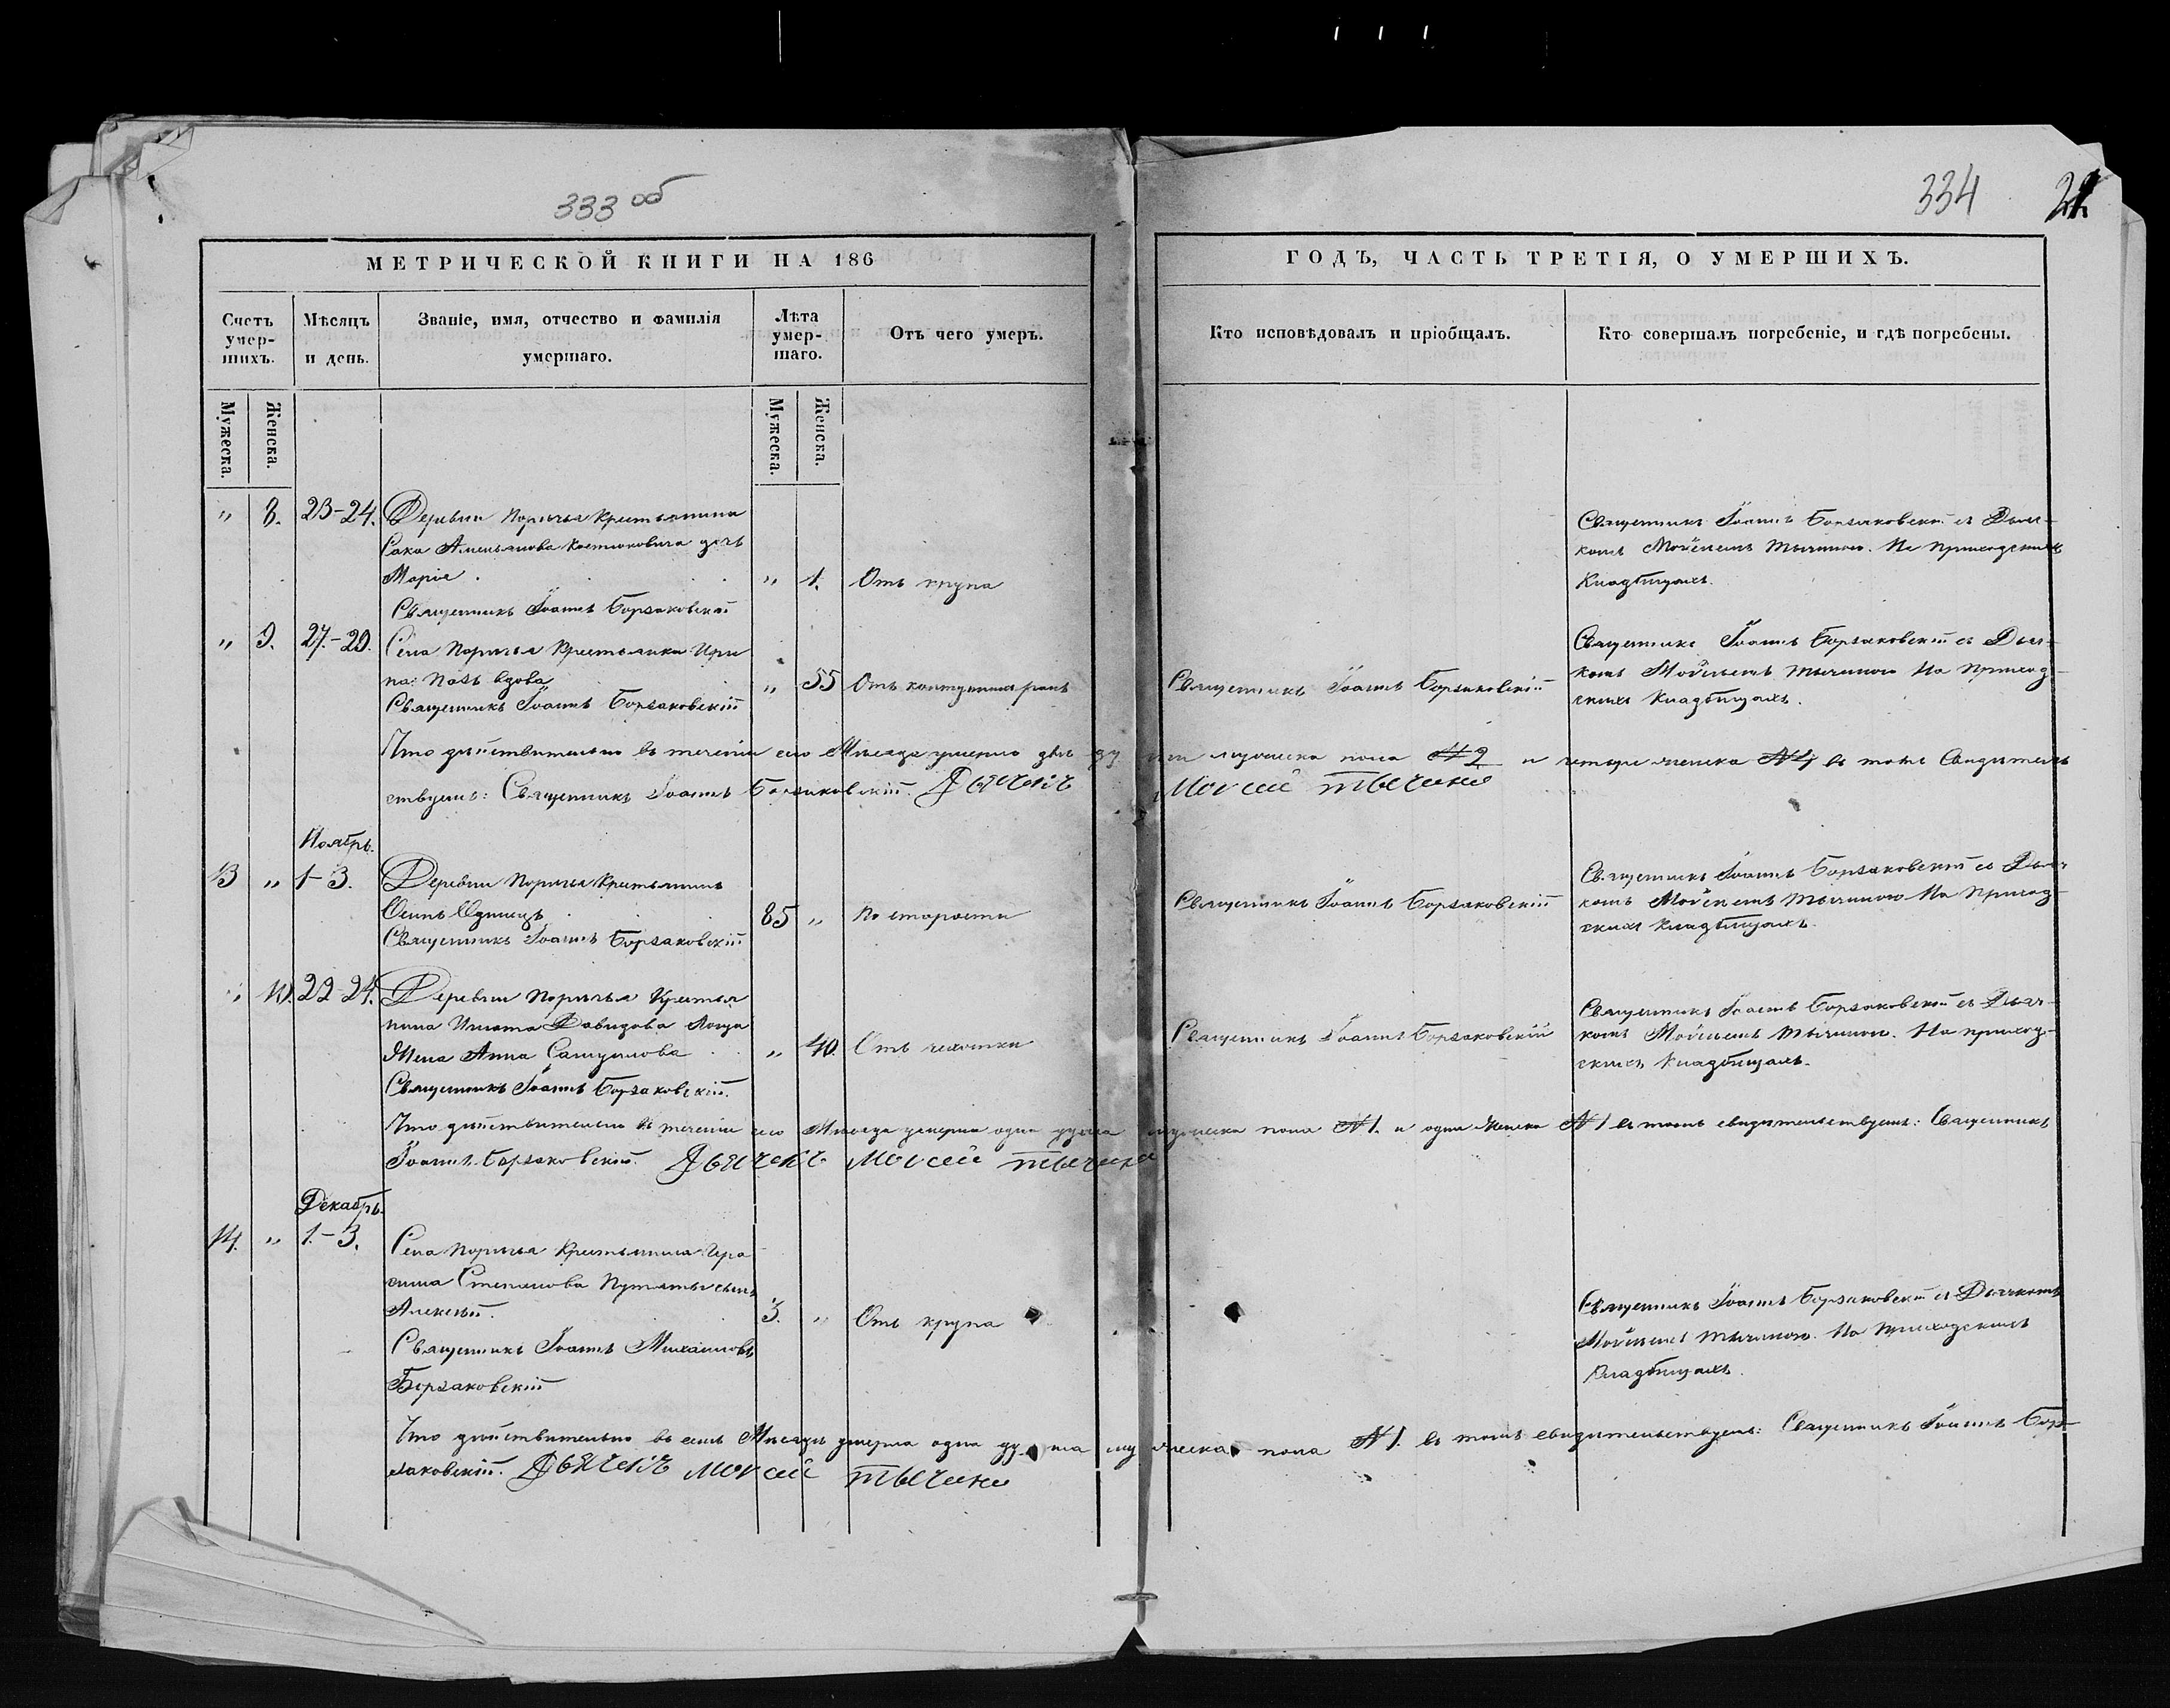 333 об
334
МЕТРИЧЕСКОЙ КНИГИ НА 186
ГОДЪ, ЧАСТЬ ТРЕТІЯ, О УМЕРШИХЪ.
Счетъ умер-
шихъ.
Мѣсяцъ
и день.
Званіе, имя, отчество и фамилія
умершаго.
Лѣта
умер-
шаго.
Отъ чего умеръ.
Кто исповѣдовалъ и пріобщалъ.
Кто совершалъ погребеніе, и гдѣ погребены.
Мужеска.
Женска.
Мужеска.
Женска.
„ 8. 23-24. Деревни Порѣчья Крестьянина
дочь
Марія. „ 1. Отъ крупа
Священникъ Іоаннъ Борзаковскій
Священникъ Іоаннъ Борзаковскій съ Дьяч-
комъ Моѵсеемъ Тычиною. На приходскихъ
Кладбищахъ.
„ 9. 27.-29. Села Порѣчья Крестьянка Ири-
на вдова „ 55 Отъ
Священникъ Іоаннъ Борзаковскій
Священникъ Іоаннъ Борзаковскій
Священникъ Іоаннъ Борзаковскій съ Дьяч-
комъ Моѵсеемъ Тычиною На приход-
скихъ Кладбищахъ.
Что дѣйствительно въ теченіи сего Мѣсяца умерло двѣ души мужеска пола №2 и четыре женска №4 въ томъ Свидѣтель
ствуемъ: Священникъ Іоаннъ Борзаковскій. Дьячекъ Моѵсей Тычина
Ноябрь.
13 „ 1-3. Деревни Порѣчья Крестьянинъ
Осипъ Одинецъ 85 „ По старости
Священникъ Іоаннъ Борзаковскій
Священникъ Іоаннъ Борзаковскій
Священникъ Іоаннъ Борзаковскій съ Дьяч-
комъ Моѵсеемъ Тычиною На приход-
скихъ Кладбищахъ.
„ 10. 22-24. Деревни Порѣчья Крестья-
нина Игната Давидова
Жена Анна Самуилова „ 40. Отъ чахотки
Священникъ Іоаннъ Борзаковскій.
Священникъ Іоаннъ Борзаковскій
Священникъ Іоаннъ Борзаковскій съ Дьяч-
комъ Моѵсеемъ Тычиною. На приход-
скихъ Кладбищахъ.
Что дѣйствительно въ теченіи сего Мѣсяца умерла одна душа мужеска пола №1. и одна Женска №1 въ томъ свидѣтельствуемъ: Священникъ
Іоаннъ Борзаковскій. Дьячекъ Моѵсей Тычина
Декабрь.
14. „ 1.-3. Села Порѣчья Крестьянина Гера-
сима Степанова сынъ
Алексѣй. 3. „ Отъ крупа
Священникъ Іоаннъ Михаиловъ
Борзаковскій
Священникъ Іоаннъ Борзаковскій съ Дьячкомъ
Моѵсеемъ Тычиною. На Приходскихъ
Кладбищахъ.
Что дѣйствительно въ семъ Мѣсяцѣ умерла одна душа мужеска пола №1. въ томъ свидѣтельствуемъ: Священникъ Іоаннъ Бор-
заковскій. Дьячекъ Моѵсей Тычина